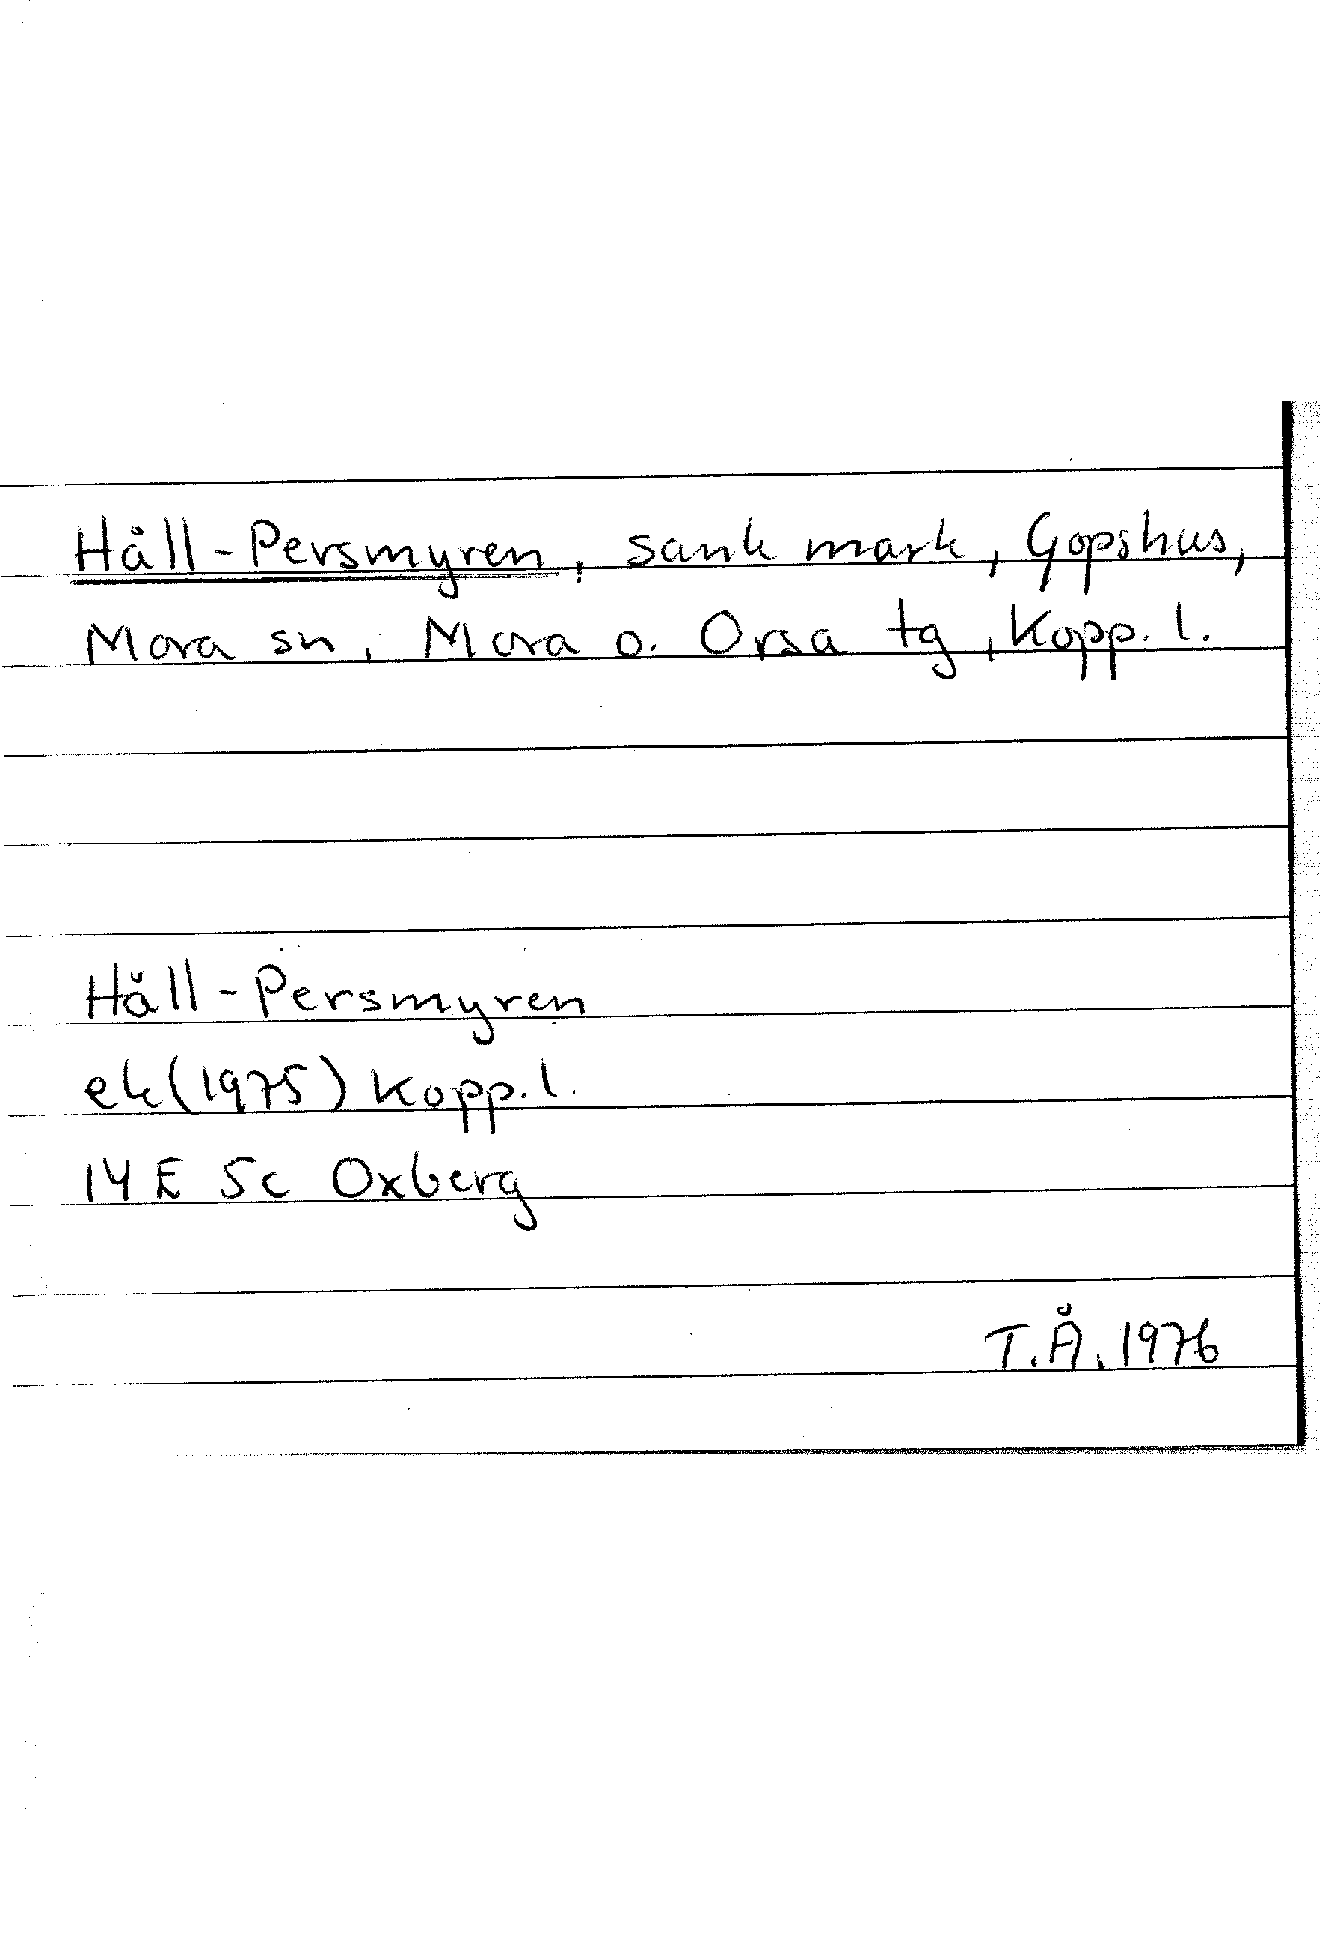 Håll-Persmyren, sank mark, Gopshus,
Mora sn, Mora o. Orsa tg, Kopp. l.
Håll-Persmyren
ek(1975) Kopp. l.
14 E 5c Oxberg
T.Å. 1976